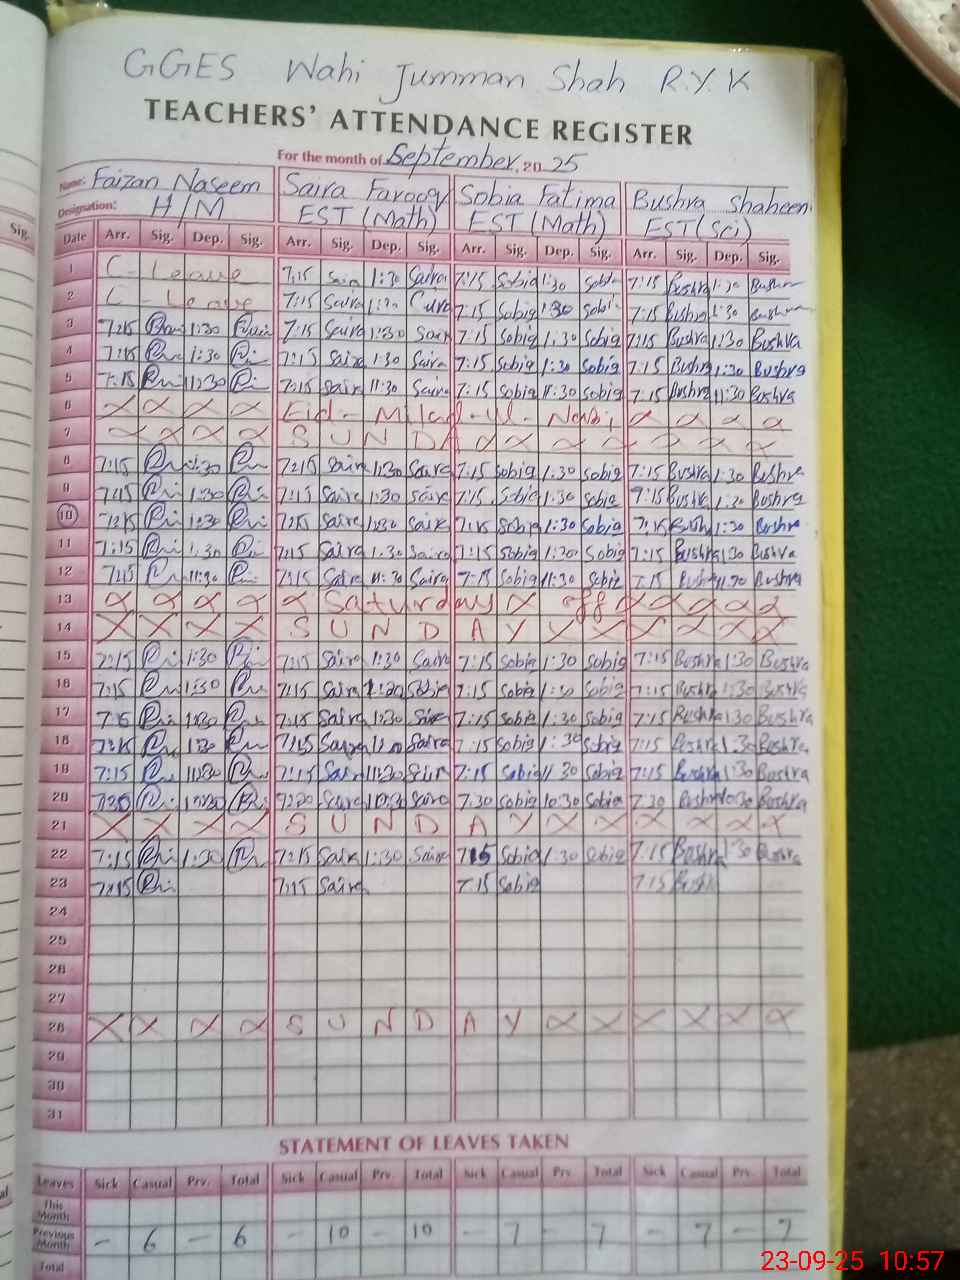 GGES Wahi Jumman Shah R.Y.K
TEACHERS' ATTENDANCE REGISTER
For the month of September, 20 25
Name: Faizan Naseem Saira Farooq Sobia Fatima Bushra Shaheen
Designation: H/M EST (Math) EST (Math) EST (Sci)
Sig.
Date Arr. Sig. Dep. Sig. Arr. Sig. Dep. Sig. Arr. Sig. Dep. Sig. Arr. Sig. Dep. Sig.
1 C- Leave 7:15 Saira 1:30 Saira 7:15 Sobia 1:30 Sobia 7:15 Bushra 1:30 Bushra
2 C- Leave 7:15 Saira 7:15 Sobia 1:30 Sobia 7:15 Bushra 1:30 Bushra
3 7:15 1:30 7:15 Saira 1:30 Saira 7:15 Sobia 1:30 Sobia 7:15 Bushra 1:30 Bushra
4 7:15 1:30 7:15 Saira 1:30 Saira 7:15 Sobia 1:30 Sobia 7:15 Bushra 1:30 Bushra
5 7:15 11:30 7:15 Saira 11:30 Saira 7:15 Sobia 11:30 Sobia 7:15 Bushra 11:30 Bushra
6 X X X X Eid- Milad-Ul- Nabi X X X X
7 X X X X S U N D A X X X X X X X
8 7:15 1:30 7:15 Saira 1:30 Saira 7:15 Sobia 1:30 Sobia 7:15 Bushra 1:30 Bushra
9 7:15 1:30 7:15 Saira 1:30 Saira 7:15 Sobia 1:30 Sobia 7:15 Bushra 1:30 Bushra
10 7:15 1:30 7:15 Saira 1:30 Saira 7:15 Sobia 1:30 Sobia 7:15 Bushra 1:30 Bushra
11 7:15 1:30 7:15 Saira 1:30 Saira 7:15 Sobia 1:30 Sobia 7:15 Bushra 1:30 Bushra
12 7:15 11:30 7:15 Saira 11:30 Saira 7:15 Sobia 11:30 Sobia 7:15 Bushra 11:30 Bushra
13 X X X X X Saturday X off X X X X
14 X X X X S U N D A Y X X X X X X
15 7:15 1:30 7:15 Saira 1:30 Saira 7:15 Sobia 1:30 Sobia 7:15 Bushra 1:30 Bushra
16 7:15 1:30 7:15 Saira 7:15 Sobia 1:30 Sobia 7:15 Bushra 1:30 Bushra
17 7:15 1:30 7:15 Saira 1:30 Saira 7:15 Sobia 1:30 Sobia 7:15 Bushra 1:30 Bushra
18 7:15 1:30 7:15 Saira Saira 7:15 Sobia 1:30 Sobia 7:15 Bushra 1:30 Bushra
19 7:15 11:30 7:15 Saira 11:30 Saira 7:15 Sobia 11:30 Sobia 7:15 Bushra 11:30 Bushra
20 7:30 10:30 Saira 10:30 Saira 7:30 Sobia 10:30 Sobia 7:30 Bushra 10:30 Bushra
21 X X X X S U N D A Y X X X X X X
22 7:15 1:30 7:15 Saira 1:30 Saira 7:15 Sobia 1:30 Sobia 7:15 Bushra 1:30 Bushra
23 7:15 7:15 Saira 7:15 Sobia 7:15 Bushra
24
25
26
27
28 X X X X S U N D A Y X X X X X X
29
30
31
STATEMENT OF LEAVES TAKEN
Leaves Sick Casual Prv. Total Sick Casual Prv. Total Sick Casual Prv. Total Sick Casual Prv. Total
This Month
Previous Month - 6 - 6 - 10 - 10 - 7 - 7 - 7 - 7
Total
23-09-25 10:57